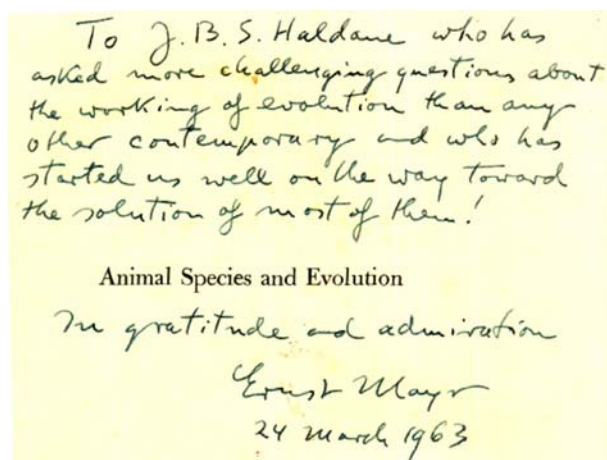 To J.B.S. Haldane who has
asked more challenging questions about
the working of evolution than any
other contemporary and who has
started us well on the way toward
the solution of most of them!
Animal Species and Evolution
In gratitude and admiration
Ernst Mayr
24 March 1963